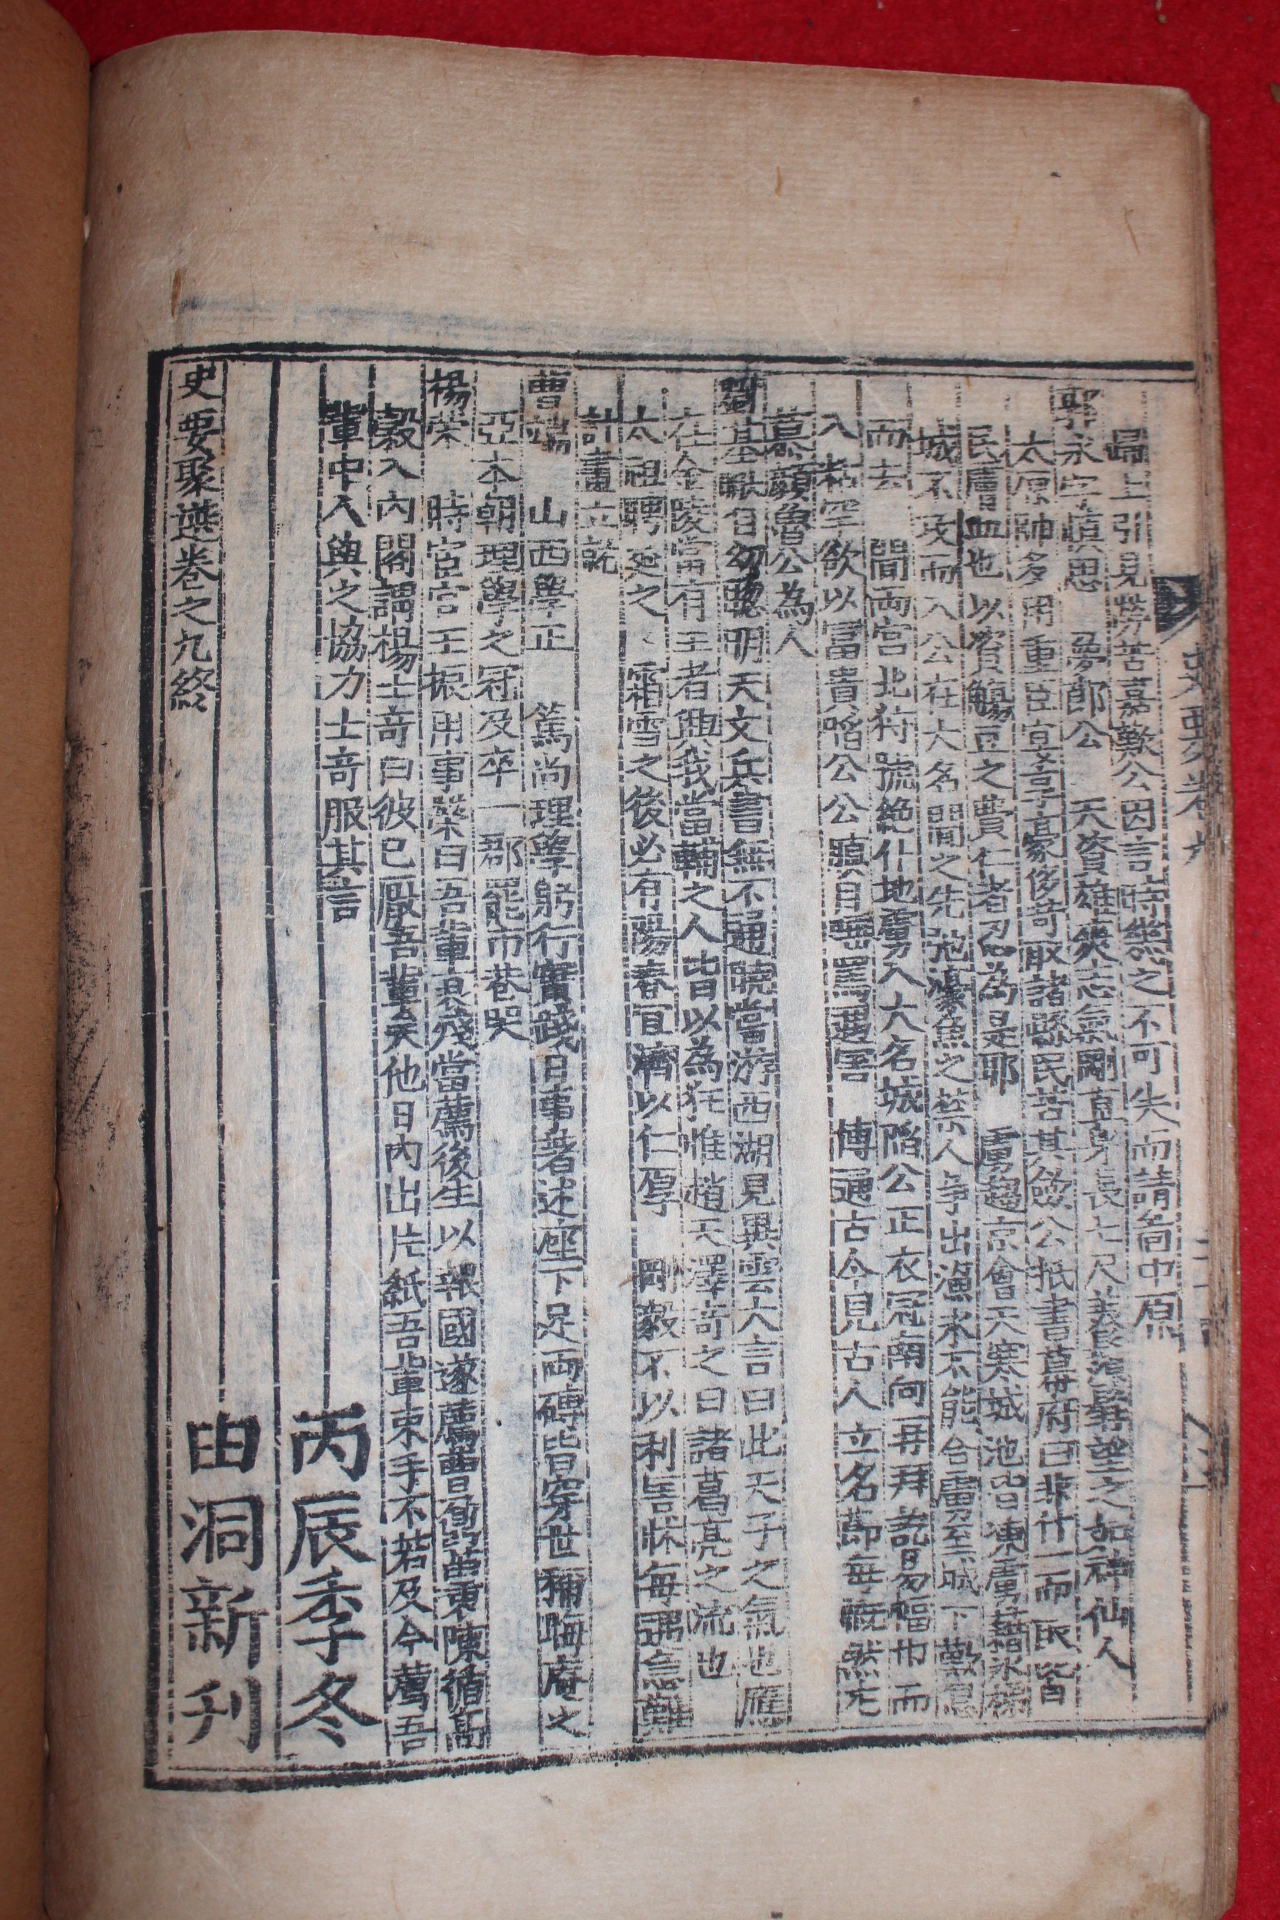 歸上引見勞苦嘉歎公因言時然之不可失而請啚中原
郭永字愼思 晏郎公 天資雄󠄁志氣剛直身長七尺美髮望之如神仙人
太原帥多用重臣宴享豪侈奇取諸縣民苦其斂公抵書幕府曰非什一而取皆
民膏血也以資觴豆之費仁者忍爲是耶 虜趨京會天寒城池皆凍虜藉氷梯
城不攻而入公在大名聞之先弛濠魚之禁人爭出漁氷不能合虜至城下歎息
而去 聞兩宮北狩號絶仆地虜入大名城陷公正衣冠南向再拜訖易幅巾而
入 粘罕欲以富貴啗公公瞋目唾罵遇害 博通古今見古人立名節每慨然
慕顔魯公爲人
劉基 聰明天文兵書無不通曉嘗游西湖見異雲大言曰此天子之氣也應
在金陵當有王者興我當輔之人皆以爲狂惟趙天澤奇之曰諸葛亮之流也
太祖聘延之 霜雪之後必有陽春宜濟以仁厚 剛毅不以利害怵每遇急難
計畫立就
曹端 山西學正 篤尙理學躬行實踐日事著述座下足兩磚皆穿世稱晦庵之
亞本朝理學之冠及卒一郡罷市巷哭
楊榮 時宦官王振用事榮曰吾輩衰殘當薦後生以報國遂薦曹鼐苗衷陳循高
穀入內閣謂楊士奇曰彼已厭吾輩矣他日內出片紙吾輩束手不若及今薦吾
輩中人與之協力士奇服其言
丙辰季冬
史要聚選卷之九終
由洞新刊